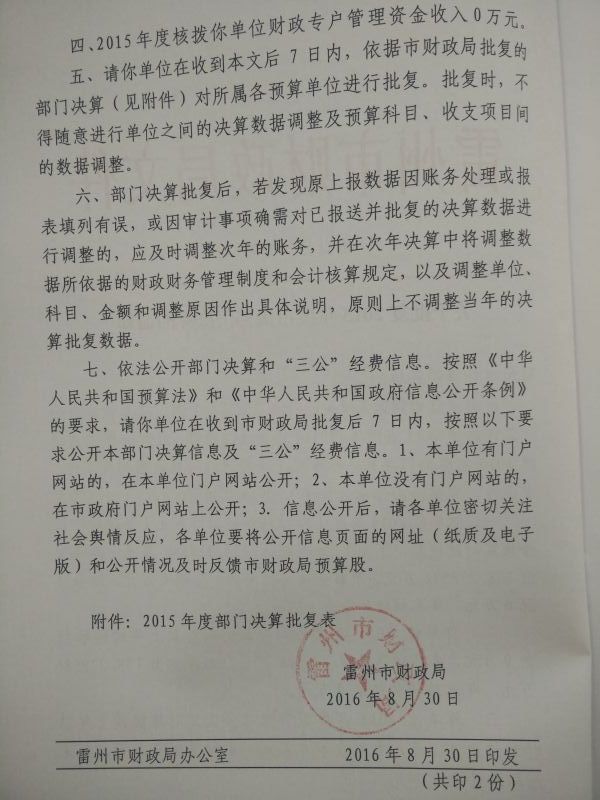 四、2015年度核拨你单位财政专户管理资金收入0万元。
五、请你单位在收到本文后7日内，依据市财政局批复的
部门决算（见附件）对所属各预算单位进行批复。批复时，不
得随意进行单位之间的决算数据调整及预算科目、收支项目间
的数据调整。
六、部门决算批复后，若发现原上报数据因账务处理或报
表填列有误，或因审计事项确需对已报送并批复的决算数据进
行调整的，应及时调整次年的账务，并在次年决算中将调整数
据所依据的财政财务管理制度和会计核算规定，以及调整单位、
科目、金额和调整原因作出具体说明，原则上不调整当年的决
算批复数据。
七、依法公开部门决算和“三公”经费信息。按照《中华
人民共和国预算法》和《中华人民共和国政府信息公开条例》
的要求，请你单位在收到市财政局批复后7日内，按照以下要
求公开本部门决算信息及“三公”经费信息。1、本单位有门户
网站的，在本单位门户网站公开；2、本单位没有门户网站的，
在市政府门户网站上公开；3. 信息公开后，请各单位密切关注
社会舆情反应，各单位要将公开信息页面的网址（纸质及电子
版）和公开情况及时反馈市财政局预算股。
附件：2015年度部门决算批复表
雷州市财政局
雷州市财政局
2016年8月30日
雷州市财政局办公室 2016年8月30日印发
（共印2份）